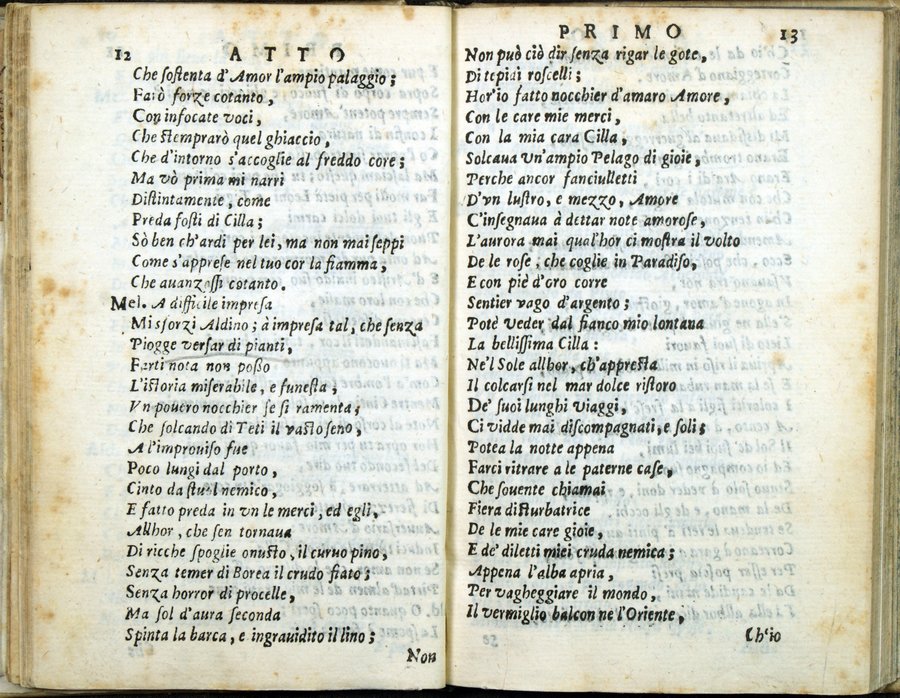 12 ATTO
Che sostenta d'Amor l'ampio palaggio;
Farò forze cotanto,
Con infocate voci,
Che stemprarò quel ghiaccio,
Che d'intorno s'accoglie al freddo core;
Ma vò prima mi narri
Distintamente, come
Preda fosti di Cilla;
Sò ben ch'ardi per lei, ma non mai seppi
Come s'apprese nel tuo cor la fiamma,
Che auanzossi cotanto.
Mel. A difficile impresa
Mi sforzi Aldino; à impresa tal, che senza
Piogge versar di pianti,
Farti nota non posso
L'istoria miserabile, e funesta,
Vn pouero nocchier se si ramenta;
Che solcando di Teti il vasto seno,
A l'improuiso fue
Poco lungi dal porto,
Cinto da stuol nemico,
E fatto preda in vn le merci, ed egli,
Allhor, che sen tornaua
Di ricche spoglie onusto, il curuo pino,
Senza temer di Borea il crudo fiato;
Senza horror di procelle,
Ma sol d'aura seconda
Spinta la barca, e ingrauidito il lino;
Non
PRIMO 13
Non può ciò dir senza rigar le gote,
Di tepidi roscelli;
Hor'io fatto nocchier d'amaro Amore,
Con le care mie merci,
Con la mia cara Cilla,
Solcaua vn'ampio Pelago di gioie,
Perche ancor fanciulletti
D'vn lustro, e mezzo, Amore
C'insegnaua à dettar note amorose,
L'aurora mai qual'hor ci mostra il volto
De le rose, che coglie in Paradiso,
E con piè d'oro corre
Sentier vago d'argento;
Potè veder dal fianco mio lontana
La bellissima Cilla:
Ne'l Sole allhor, ch'appresta
Il colcarsi nel mar dolce ristoro
De' suoi lunghi viaggi,
Ci vidde mai discompagnati, e soli;
Potea la notte appena
Farci ritrare a le paterne case,
Che souente chiamai
Fiera disturbatrice
De le mie care gioie,
E de' diletti miei cruda nemica;
Appena l'alba apria,
Per vagheggiare il mondo,
Il vermiglio balcon ne l'Oriente,
Ch'io